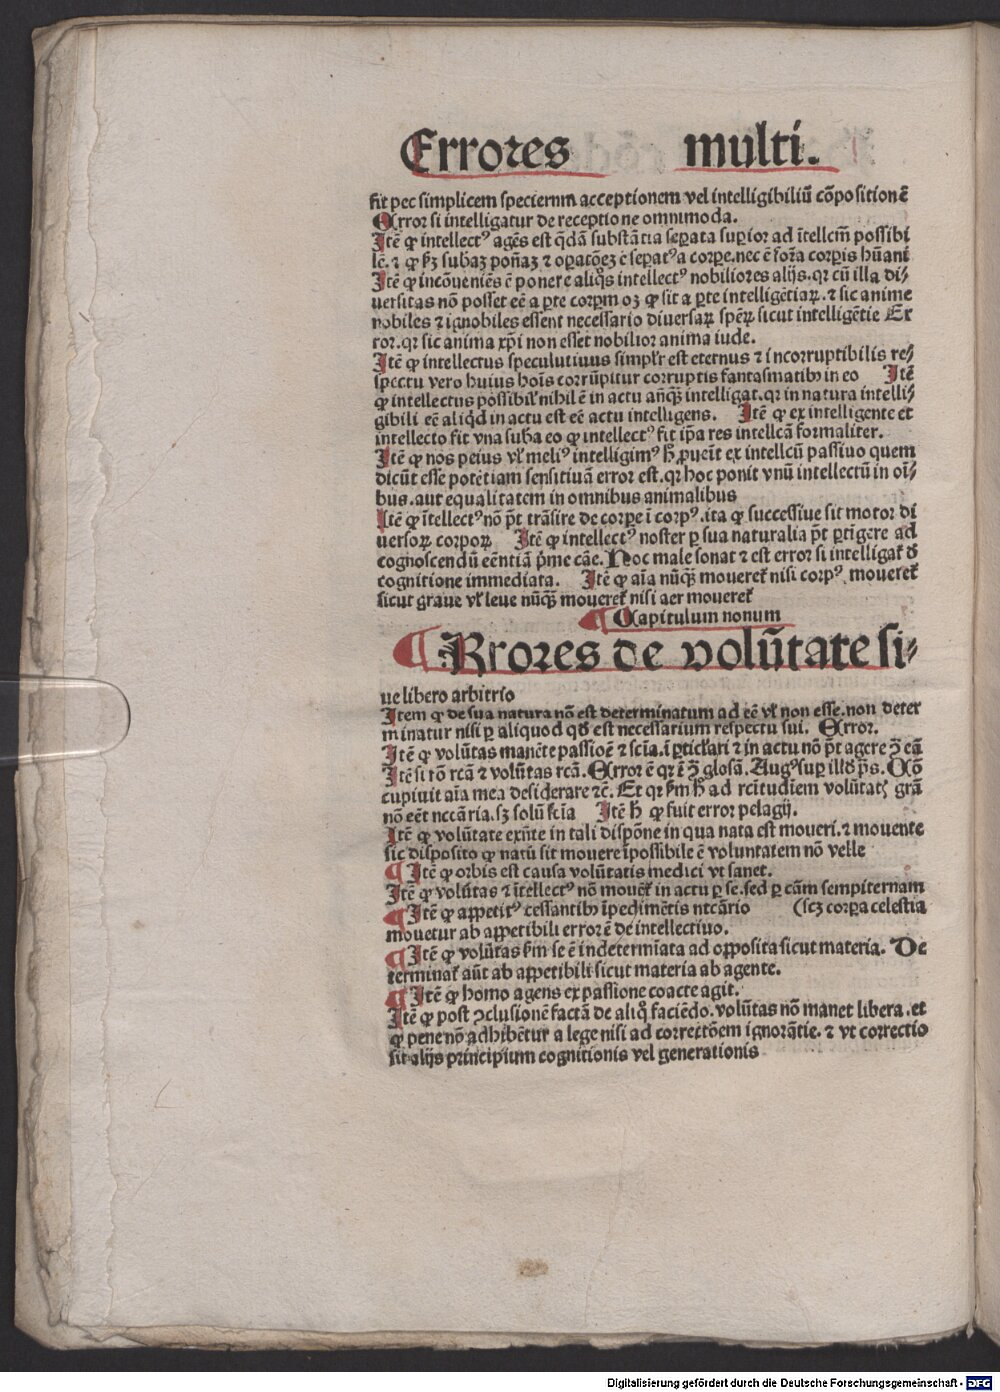 Errores multi.
fit pec simplicem speciernm acceptionem vel intelligibiliū cōpositionē
Error si intelligatur de receptio ne omnimoda.
Itē ꝙ intellectꝰ agēs est q̄dā substātia seꝑata suꝑior ad ītellcm̄ possibi
lē. ⁊ ꝙ
Itē ꝙ incōueniēs ē ponere aliq̄s intellectꝰ nobiliores alijs. qꝛ cū illa di⸗
uersitas nō posset eē a ꝑte corpꝛm oꝫ ꝙ sit a ꝑte intelligētiaꝝ. ⁊ sic anime
nobiles ⁊ ignobiles essent necessario diuersaꝝ spērꝝ sicut intelligētie Er
ror. qꝛ sic anima xp̄i non esset nobilior anima iude.
Itē ꝙ intellectus speculutiuus simplr̄ est eternus ⁊ incorruptibilis re⸗
spectu vero huius hoīs corrūpitur corruptis fantasmatibꝰ in eo Itē
ꝙ intellectus possibil' nihil ē in actu anq̄ꝫ intelligat. qꝛ in natura intelli⸗
gibili eē aliq̄d in actu est eē actu intelligens. Itē ꝙ ex intelligente et
intellecto fit vna suba eo ꝙ intellectꝰ fit ip̄a res intellcā formaliter.
Itē ꝙ nos peius vl' meliꝰ intelligimꝰ h̄ ꝓueīt ex intellcū passiuo quem
dicūt esse potētiam sensitiuā error est. qꝛ hoc ponit vnū intellectū in oī⸗
bus. aut equalitatem in omnibus animalibus
Itē ꝙ ītellectꝰ nō pt̄ trāsire de corpe ī corpꝰ. ita ꝙ successiue sit motor di
uersoꝝ corpoꝝ Itē ꝙ intellectꝰ noster ꝑ sua naturalia pt̄ ꝑtigere ad
cognoscendū eēntiā p̄me cāe. Hoc male sonat ⁊ est error si intelligat̄ d̄
cognitione immediata. Itē ꝙ aīa nūq̄ꝫ moueret̄ nisi corpꝰ moueret̄
sicut graue vl' leue nūq̄ꝫ moueret̄ nisi aer moueret̄
Capitulum nonum
Errores de volūtate si⸗
ue libero arbitrio
Item ꝙ de sua natura nō est determinatum ad eē vl' non esse. non deter
minatur nisi ꝑ aliquod qd̄ est necessarium respectu sui. Error.
Itē ꝙ volūtas manēte passiōe ⁊ scīa. ī ꝑticl'ari ⁊ in actu nō pt̄ agere ꝯ̄ eā
Itē si rō rcā ⁊ volūtas rcā. Error ē qꝛ ē ꝯ̄ glosā. Augꝰ suꝑ ill'd ps̄. Cōcō
cupiuit aīa mea desiderare ⁊c̄. Et qꝛ ẜm h̄ ad rcitudiem volūtatꝭ grā
nō eēt nccāria. sꝫ solū scīa Itē h̄ ꝙ fuit error pelagij.
Itē ꝙ volūtate exn̄te in tali dispōne in qua nata est moueri. ⁊ mouente
sic disposito ꝙ natū sit mouere īpossibile ē voluntatem nō velle
¶ Itē ꝙ orbis est causa volūtatis medici vt sanet.
Itē ꝙ volūtas ⁊ ītellectꝰ nō mouēt̄ in actu ꝑ se. sed ꝑ cām sempiternam
¶ Itē ꝙ appetitꝰ cessantibꝰ īpedimētis ntcārio (scꝫ corpa celestia
mouetur ab appetibili error ē de intellectiuo.
¶ Itē ꝙ volūtas ẜm se ē indetermīata ad opposita sicut materia. De
terminat̄ aūt ab appetibili sicut materia ab agente.
¶ Itē ꝙ homo agens ex passione coacte agit.
Itē ꝙ post ꝯclusionē factā de aliq̄ faciēdo. volūtas nō manet libera. et
ꝙ pene nō adhibētur a lege nisi ad correctōem ignorātie. ⁊ vt correctio
sit alijs principium cognitionis vel generationis
Digitalisierung gefördert durch die Deutsche Forschungsgemeinschaft - DFG